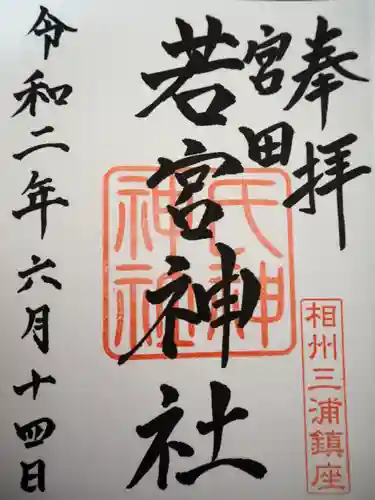 奉拝
宮田
若宮神社
令和二年六月十四日
氏神
神社
相州三浦鎮座